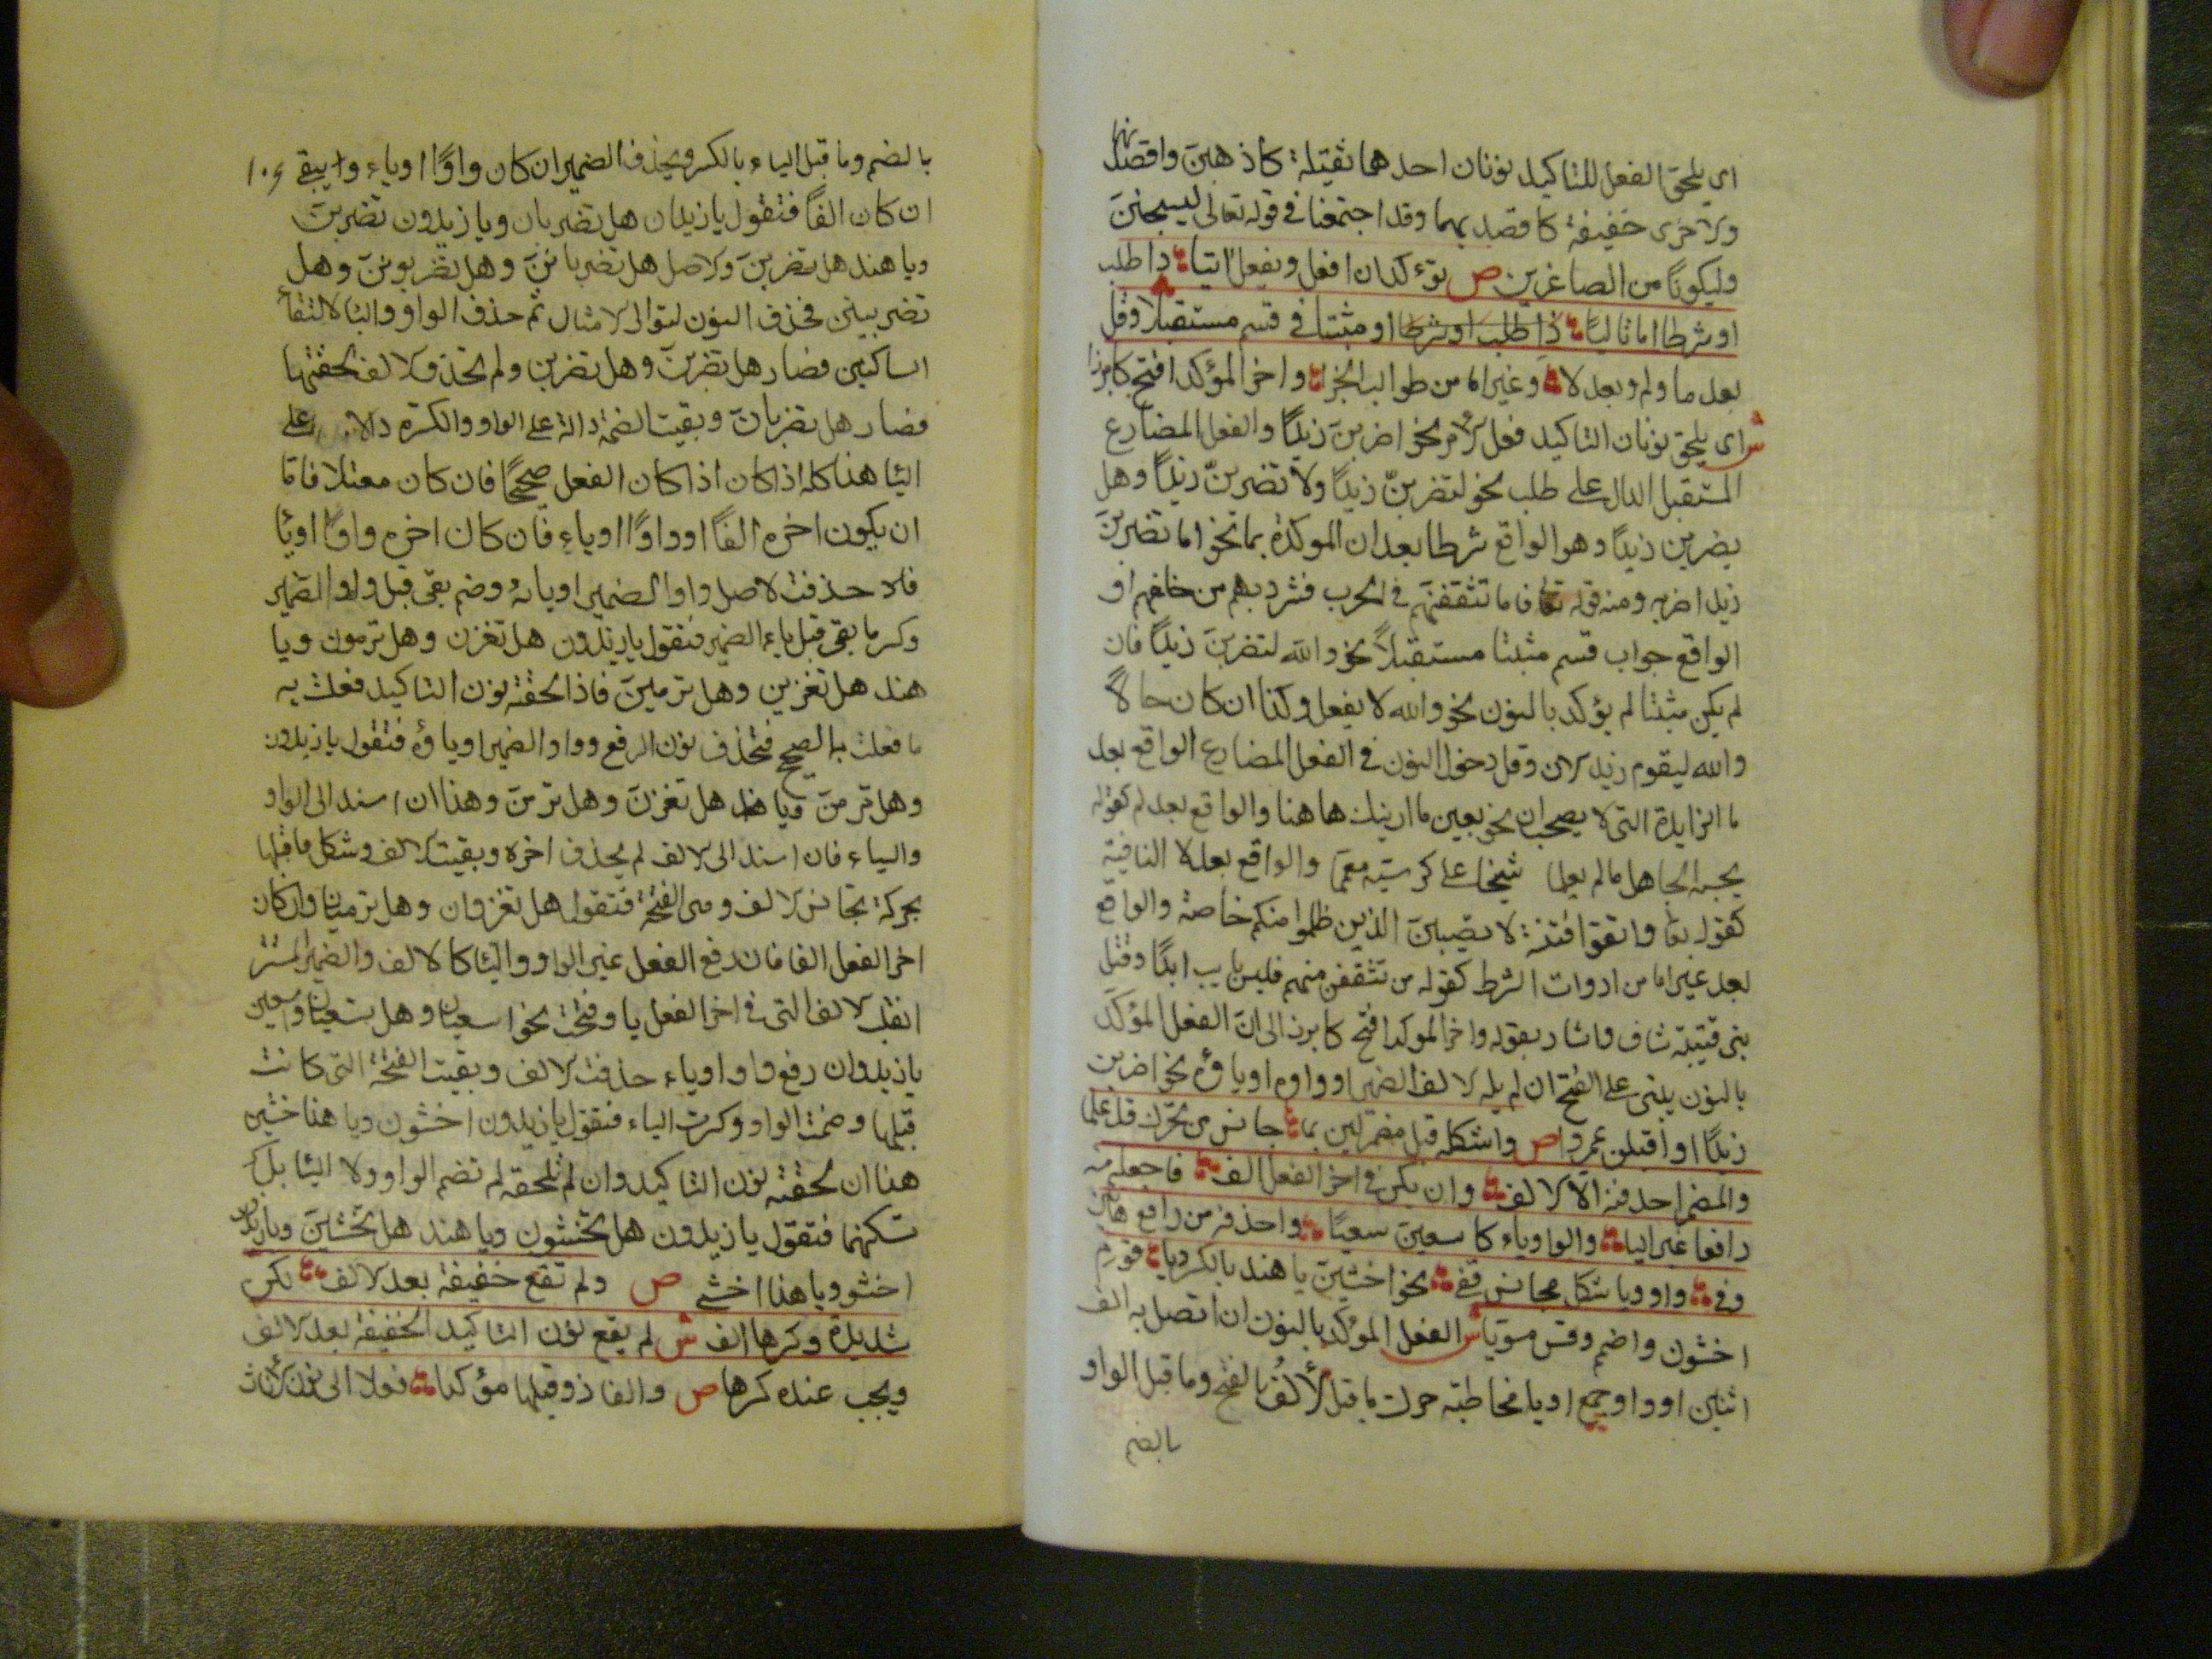 اى يلحق الفعل للتاكيد نونان احدهما ثقيلة كاذهبنّ واقصدنهما
ولاخرى خفيفة كاقصدنهما وقد اجتمعتا فى قوله تعالى ليسجننّ
وليكونًا من الصاغرين ص يؤكدان افعل ويفعل اتيا ذا طلب
او شرطا اما تاليا ذا طلب او شرطا او مثبتا فى قسم مستقبلا وقل
بعد ما ولم وبعد لا وغير اما من طوالب الجزا واخر المؤكد افتح كابرزا
ش اى يلحق نونان التاكيد فعل الامر نحو اضربنّ زيدًا والفعل المضارع
المستقبل الدال على طلب نحو لتضربنّ زيدًا ولا تضربنّ زيدًا وهل
يضربن زيدًا وهو الواقع شرطا بعد ان الموكدة بما نحو اما تضربنّ
زيد اضربه ومنه قوله تعا فاما تثقفنهم فى الحرب فشرد بهم من خلفهم او
الواقع جواب قسم مثبتا مستقبلاً نحو والله لتضربنّ زيدًا فان
لم يكن مثبتا لم يؤكد بالنون نحو والله لا يفعل وكذا ان كان حالاً
والله ليقوم زيد الان وقل دخول النون فى الفعل المضارع الواقع بعد
ما الزايدة التى لا يصحب ان نحو بعين ما ارينك هاهنا والواقع بعد لم كقوله
يحسبه الجاهل ما لم يعلما شيخا على كرسيه معمما والواقع بعد لا النافية
كقوله تعا واتقوا فتنة لا تصيبنّ الذين ظلموا منكم خاصة والواقع
بعد غير اما من ادوات الشرط كقوله من تثقفن منهم فليس بايب ابدًا وقتل
بنى قتيبة شاف واشار بقوله واخر الموكد افتح كابرزا الى انّ الفعل المؤكد
بالنون يبنى على الفتح ان لم يله الالف الضمير او واوه او ياؤه نحو اضربن
زيدًا او اقبلن عمروا ص واشكله قبل مضمر لين بما جانس من تحرك قد علما
والمضمر احذفنه الا الالف وان يكن فى اخر الفعل الف فاجعله منه
رافعا غير اليا والواو ياء كاسعينّ سعيًا واحذفه من رافع هاتين
وفى واو ويا شكل مجانس قفى نحو اخشينّ يا هند بالكسر ويا قوم
اخشون واضمم وقس مسويا ش الفعل المؤكد بالنون ان اتصل به الف
اثنين او واو جمع او يا مخاطبة حرك ما قبل الالف بالفتح وما قبل الواو
بالضم
بالضم وما قبل الياء بالكسر ويحذف الضمير ان كان واوًا او ياء ويبقى
ان كان الفًا فتقول يا زيدان هل تضربان ويا زيدون تضربنّ
ويا هند هل تضربنّ ولاصل هل تضرباننّ وهل تضربوننّ وهل
تضربينن فحذف النون لتوالى الامثال ثم حذف الواو واليا لالتقاء
الساكنين فصار هل تضربنّ وهل تضربن ولم تحذف الالف لخفتها
فصار هل تضربانّ وبقيت الضمة دالة على الواو والكسرة دالة على
اليا هذا كله اذا كان اذا كان الفعل صحيحًا فان كان معتلا فاما
ان يكون اخره الفًا او واوًا او ياء فان كان اخره واوًا او يا
حذفت لاصل واو الضمير او يائه وضم بقى قبل واو الضمير
وكسر ما بقى قبل ياء الضمير فتقول يا زيدون هل تغزن وهل ترمون ويا
هند هل تغزين وهل ترمينّ فاذا لحقته نون التاكيد فعلت به
ما فعلت بالصحيح فتحذف نون الرفع وواو الضمير او ياؤه فتقول يا زيدون
وهل ترمنّ ويا هند هل تغزنّ وهل ترمنّ وهذا ان اسند الى الواو
والياء فان اسند الى الالف لم يحذف اخره وبقيت الالف وشكل ما قبلها
بحركة تجانس الالف وهى الفتحة فتقول هل تغزوان وهل ترميان وان كان
اخر الفعل الفا فان رفع الفعل غير الواو واليا كالالف والضمير المستتر
انقلب الالف التى فى اخر الفعل يا وفتحت نحو اسعيان وهل تسعيان واسعين
يا زيد وان رفع واو او ياء حذفت الالف وبقيت الفتحة التى كانت
قبلها وضمت الواو وكسرت الياء فتقول يا زيدون اخشون ويا هند اخشين
هذا ان لحقته نون التاكيد وان لم تلحقه لم تضم الواو ولا اليا بل
تسكنهما فتقول يا زيدون هل تخشون ويا هند هل تخشينّ ويا زيدون
اخشو ويا هند اخشى ص ولم تقع خفيفة بعد الالف لكن
شديدة وكسرها الف ش لم يقع نون التاكيد الخفيفة بعد الالف
ويجب عنده كسرها ص والفا زد قبلها مؤكدا فعلا الى نون الاناث